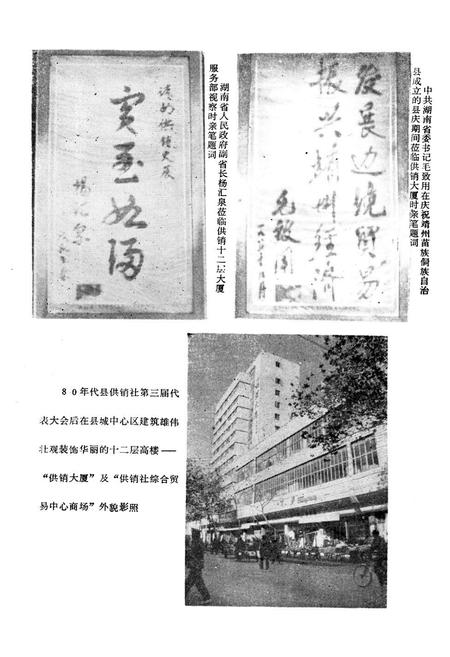 中共湖南省委书记毛致用在庆祝靖州苗族侗族自治
县成立的县庆期间莅临供销大厦时亲笔题词
发展边境贸易
振兴靖州经济
毛致用
湖南省人民政府副省长杨汇泉莅临供销十二层大厦
服务部视察时亲笔题词
宾至如归
杨汇泉
80年代县供销社第三届代
表大会后在县城中心区建筑雄伟
壮观装饰华丽的十二层高楼——
“供销大厦”及“供销社综合贸
易中心商场”外貌影照